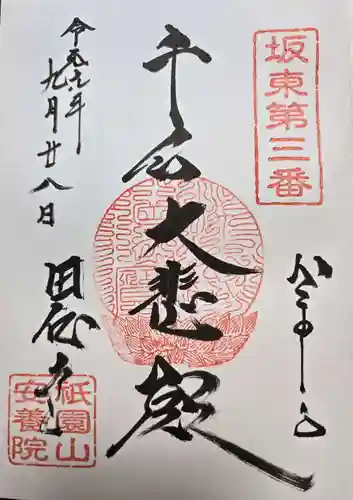 坂東第三番
かまくら
千手大悲殿
令和元年
九月廿八日
田代寺
祇園山
安養院